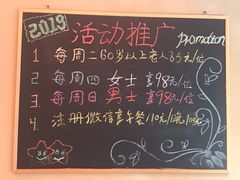 2019
活动推广
promotion
1 每周二60岁以上老人85元/位
2 每周四女士享98元/位
3 每周日男士享98元/位
4. 注册微信享午餐110元/